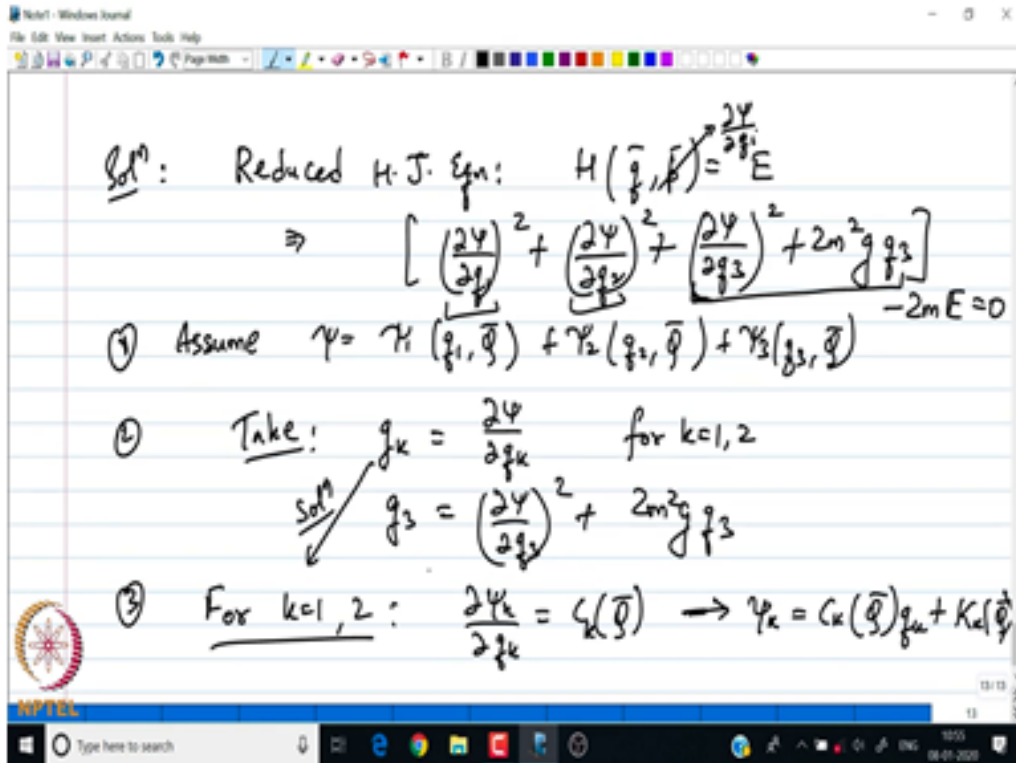 Note1 - Windows Journal
File Edit View Insert Actions Tools Help
Page Width
B I
Solⁿ: Reduced H.J. Eqn: H(q̄, p̄) = E ∂ψ/∂qᵢ
⇒ [(∂ψ/∂q₁)² + (∂ψ/∂q₂)² + (∂ψ/∂q₃)² + 2m²g q₃]
-2mE = 0
① Assume ψ = ψ₁(q₁, Q̄) + ψ₂(q₂, Q̄) + ψ₃(q₃, Q̄)
② Take: g_k = ∂ψ/∂q_k for k=1,2
Solⁿ g₃ = (∂ψ/∂q₃)² + 2m²g q₃
③ For k=1,2: ∂ψ_k/∂q_k = C_k(Q̄) → ψ_k = C_k(Q̄)q_k + K_k(Q̄
NPTEL
13/13
13
Type here to search
ENG
10:55
08-01-2020